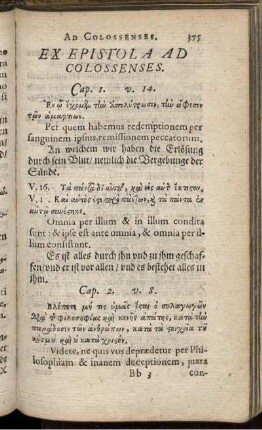 AD COLOSSENSES. 375
EX EPISTOLA AD
COLOSSENSES.
Cap. 1. v. 14.
Ἐν ᾧ ἔχομεν τὴν ἀπολύτρωσιν, τὴν ἄφεσιν
τῶν ἁμαρτιῶν.
Per quem habemus redemptionem per
sanguinem ipsius, remissionem peccatorum.
An welchem wir haben die Erlösung
durch sein Blut/ nemlich die Vergebung der
Sünde.
V. 16. Τὰ πάντα δι' αὐτοῦ, καὶ εἰς αὐτὸν ἔκτισται,
V. 17. Καὶ αὐτός ἐστι πρὸ πάντων, καὶ τὰ πάντα ἐν
αὐτῷ συνέστηκε.
Omnia per illum & in illum condita
sunt: & ipse est ante omnia, & omnia per il-
lum consistunt.
Es ist alles durch ihn und zu ihm geschaf-
fen/ und er ist vor allen/ und es bestehet alles in
ihm.
Cap. 2. v. 8.
Βλέπετε μή τις ὑμᾶς ἔσται ὁ συλαγωγῶν
διὰ τῆς φιλοσοφίας καὶ κενῆς ἀπάτης, κατὰ τὴν
παράδοσιν τῶν ἀνθρώπων, κατὰ τὰ στοιχεῖα τοῦ
κόσμου καὶ οὐ κατὰ χριστόν.
Videte, ne quis vos deprædetur per Phi-
losophiam & inanem deceptionem, juxta
Bb 3 con-